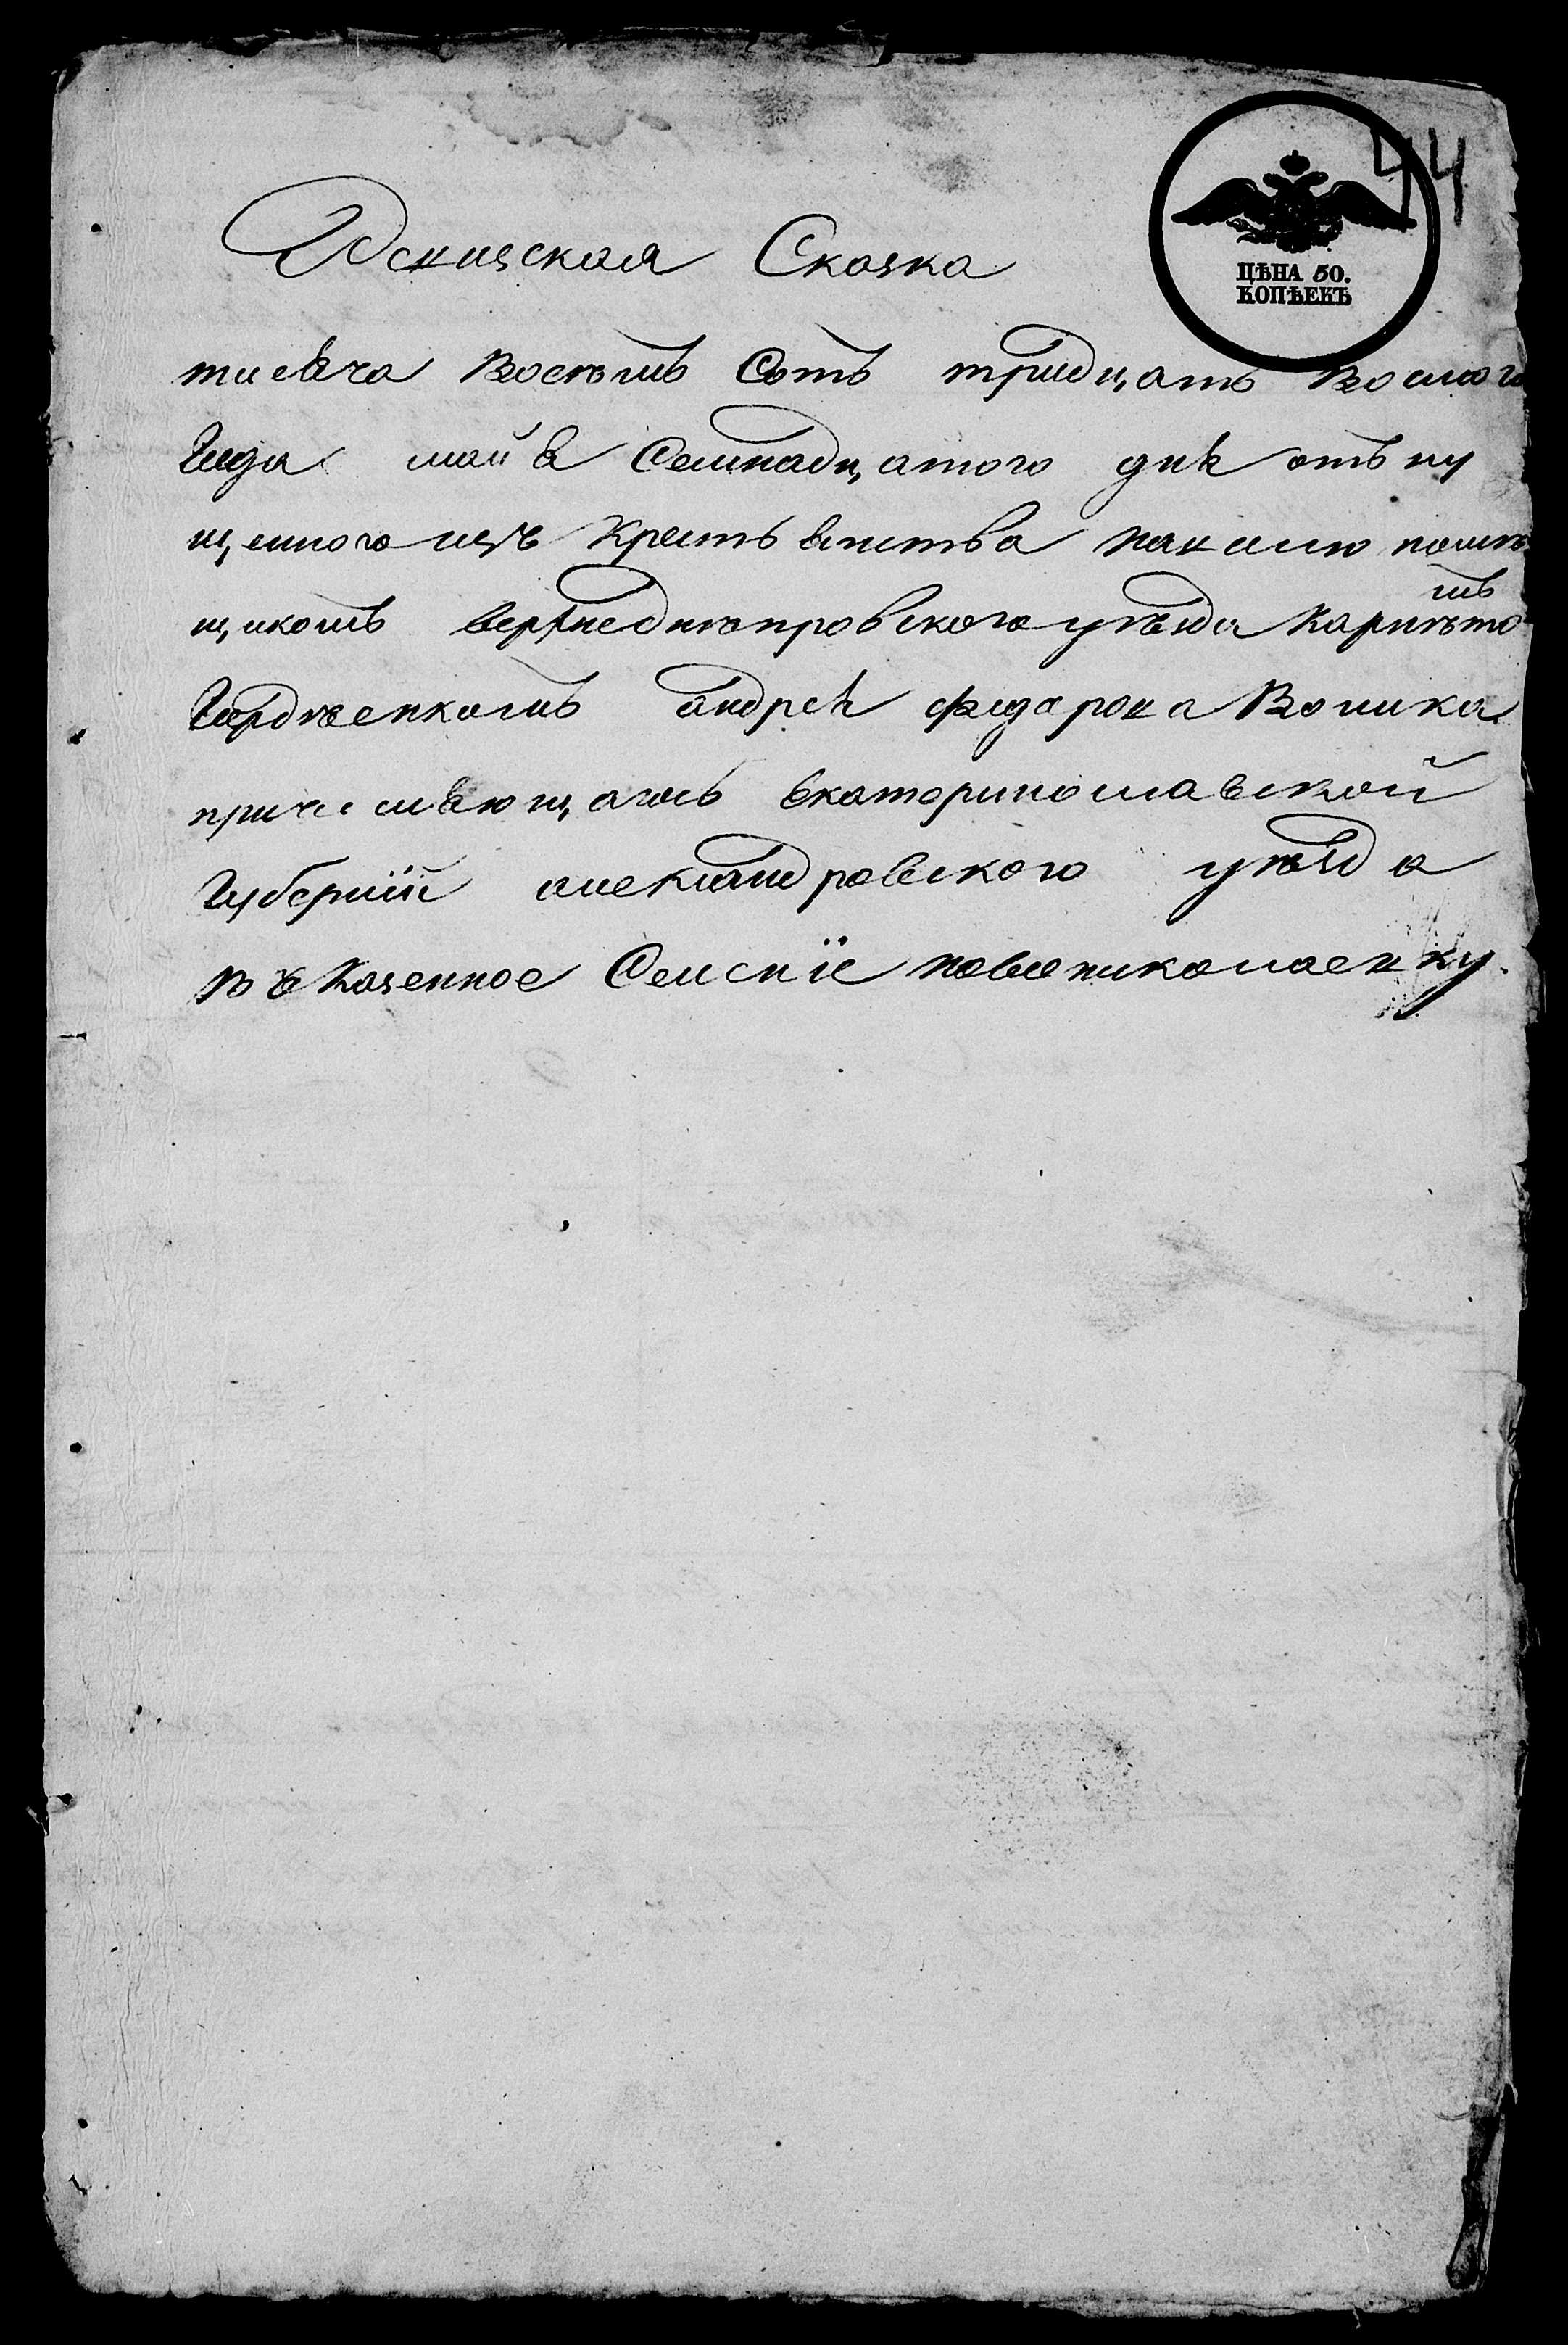 44
ЦѢНА 50.
КОПѢЕКЪ
Ревизская Сказка
тисяча Восѣмъ Сотъ тридцать Восмого
Года мая Семнадцатого дня отъ пу
щеного изъ Крестьянства наволю помѣ
щикомъ верхнеднѣпровского уѣзда Карнѣто
мъ
Гордѣенкомъ андрея федорова Волика
причисляющагось екатеринославской
Губернїи александровского уѣзда
въ Казенное Селенїе новониколаевку.